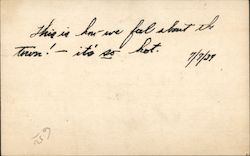 This is how we feel about the
town! - it's so hot.
7/7/39